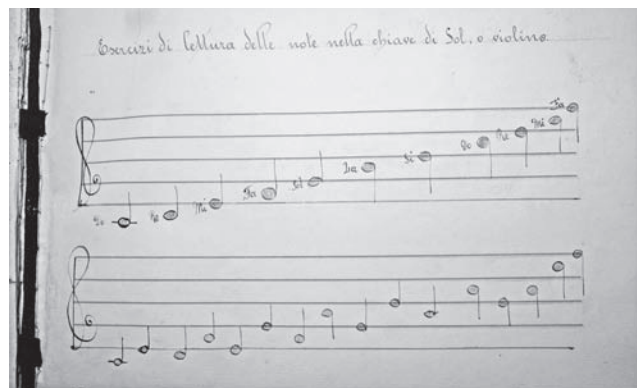 Esercizi di lettura delle note nella chiave di Sol, o violino.
Do Re Mi Fa Sol La Si Do Re Mi Fa